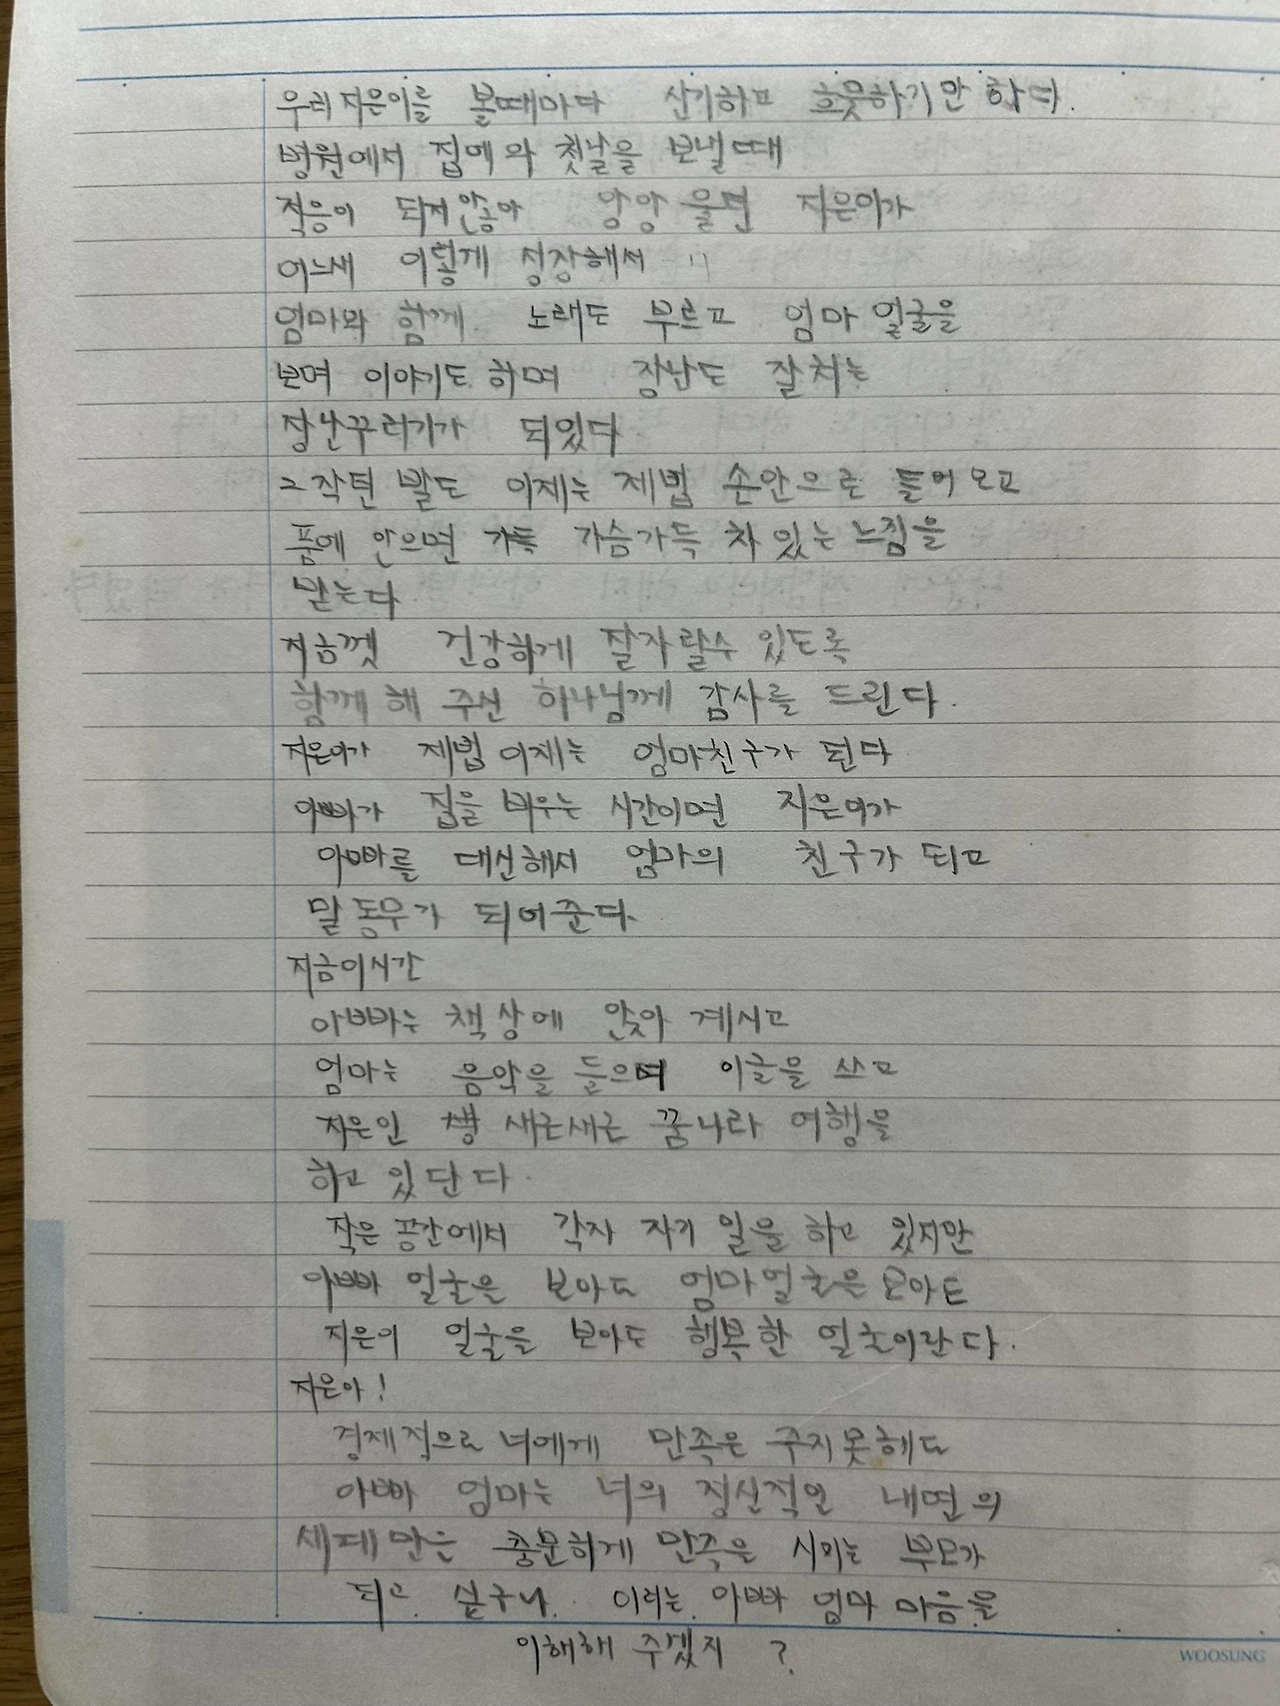 우리 지은이를 볼때마다 신기하고 흐뭇하기만 하다.
병원에서 집에와 첫날을 보낼때
적응이 되지않아 앙앙 울던 지은이가
어느새 이렇게 성장해서
엄마와 함께 노래도 부르고 엄마 얼굴을
보며 이야기도 하며 장난도 잘치는
장난꾸러기가 되었다
그작던 발도 이제는 제법 손안으로 들어오고
품에 안으면 가슴가득 차 있는 느낌을
받는다
지금껏 건강하게 잘자랄수 있도록
함께 해 주신 하나님께 감사를 드린다.
지은이가 제법 이제는 엄마친구가 된다
아빠가 집을 비우는 시간이면 지은이가
아빠를 대신해서 엄마의 친구가 되고
말동무가 되어준다.
지금이시간
아빠는 책상에 앉아 계시고
엄마는 음악을 들으며 이글을 쓰고
지은인 새근새근 꿈나라 여행을
하고 있단다.
작은 공간에서 각자 자기 일을 하고 있지만
아빠 얼굴을 보아도 엄마얼굴을 보아도
지은이 얼굴을 보아도 행복한 얼굴이란다.
지은아!
경제적으로 너에게 만족은 주지못해도
아빠 엄마는 너의 정신적인 내면의
세계만은 충분하게 만족을 시키는 부모가
되고 싶구나. 이러는 아빠 엄마 마음을
이해해 주겠지?
WOOSUNG